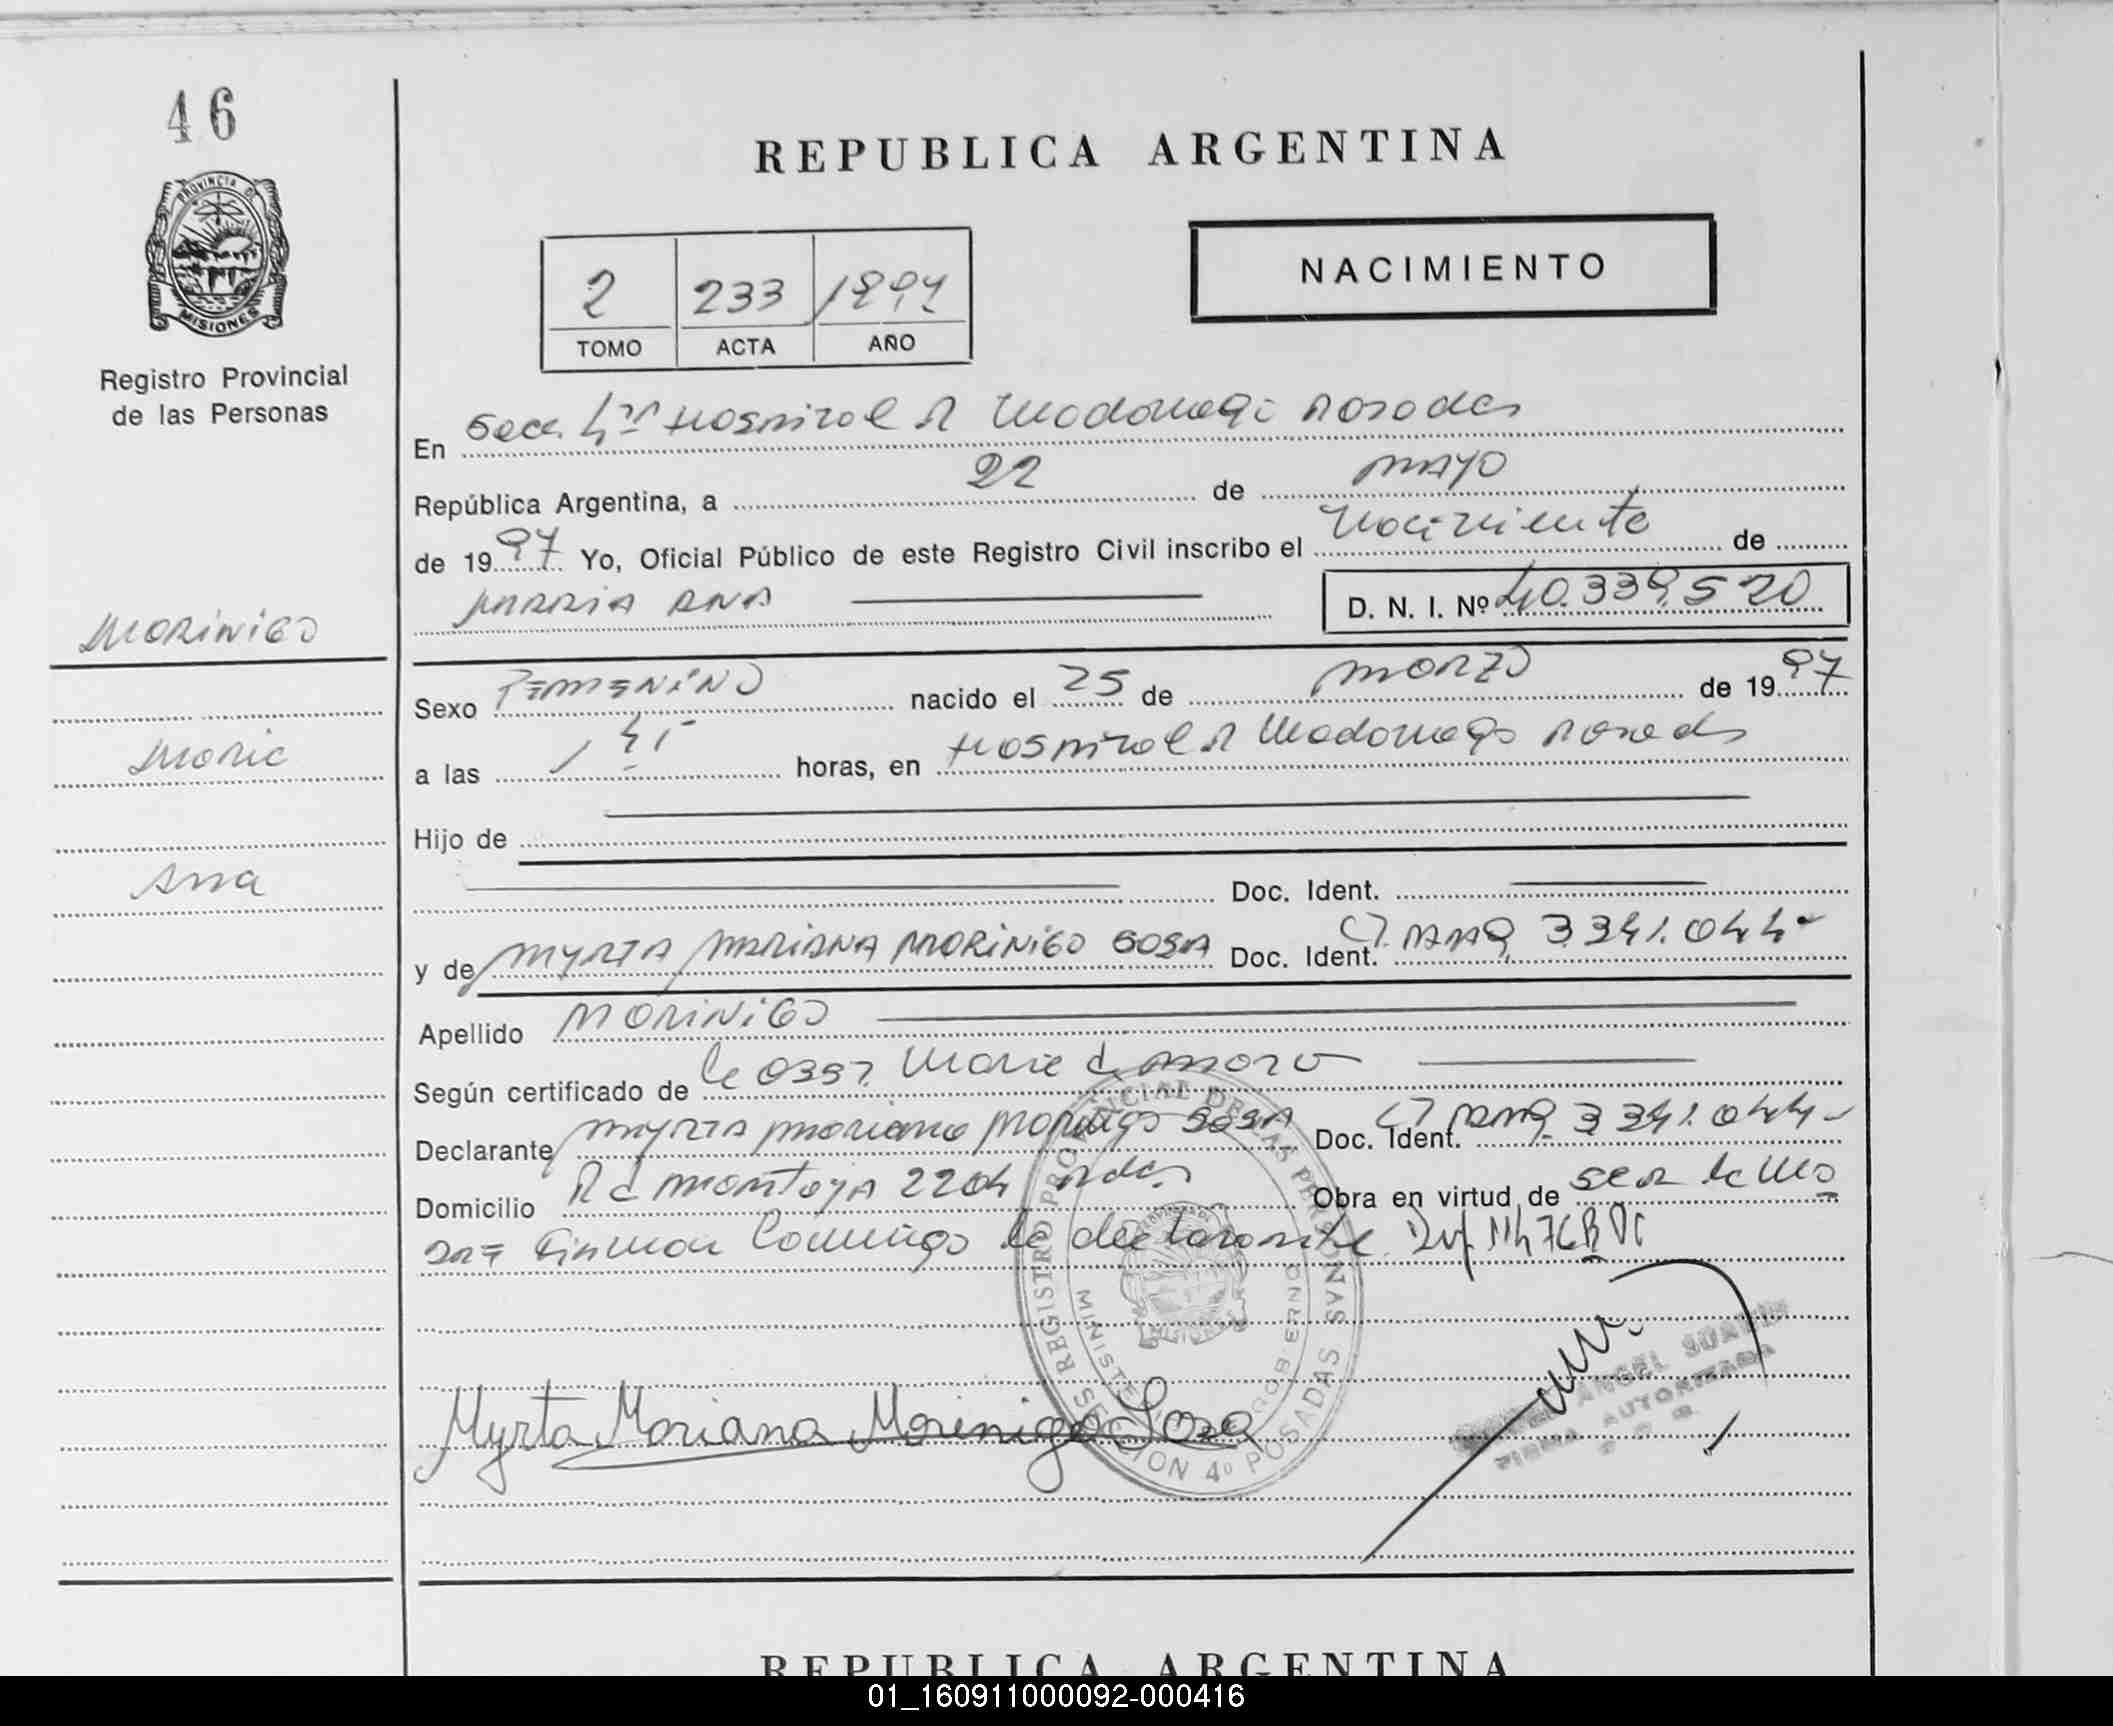 46
PROVINCIA DE
MISIONES
Registro Provincial
de las Personas
REPUBLICA ARGENTINA
NACIMIENTO
2 233
TOMO ACTA AÑO
En Secc. Hospital R Madariaga Posadas
República Argentina, a 22 de MAYO
de 1997 Yo, Oficial Público de este Registro Civil inscribo el Nacimiento de
MARRIA ANA D. N. I. Nº 40.339.520
MORINIGO
Sexo FEMENINO nacido el 25 de MARZO de 1997
Maria
a las horas, en Hospital R Madariaga Posadas
Hijo de
Ana
Doc. Ident.
y de MYRTA MARIANA MORINIGO SOSA Doc. Ident. 3.341.044-
Apellido MORINIGO
Según certificado de Maria
Declarante MYRTA Mariana Morinigo SOSA Doc. Ident. 3.341.044-
Domicilio R d Montoya 2204 Pdas Obra en virtud de ser la
firman conmigo la declarante
REGISTRO PROVINCIAL DE LAS PERSONAS
MINISTERIO GOBIERNO
SECCION 4º POSADAS
Myrta Mariana Morinigo Sosa
ANGEL
FIRMA AUTORIZADA
REPUBLICA ARGENTINA
01_160911000092-000416